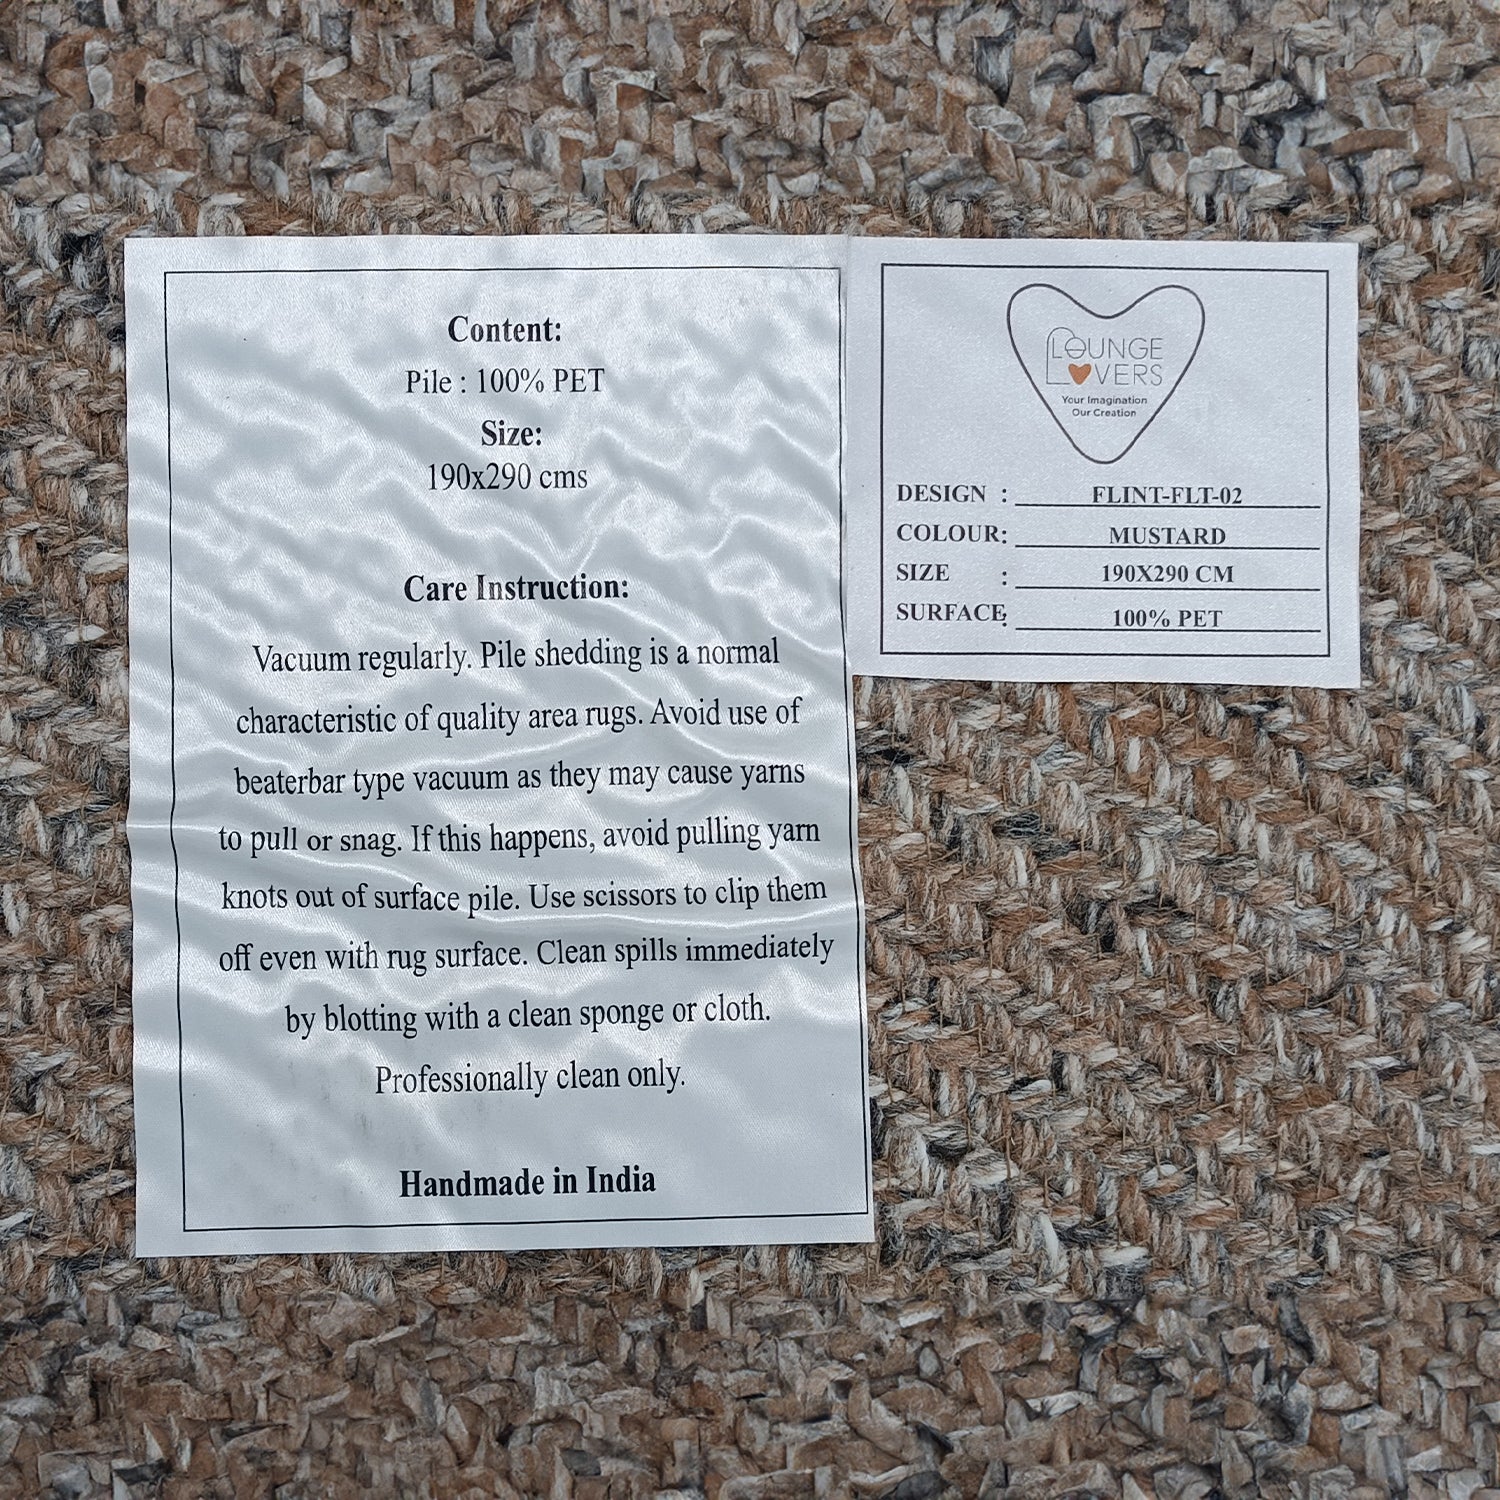 Content:
Pile : 100% PET
Size:
190x290 cms
Care Instruction:
Vacuum regularly. Pile shedding is a normal
characteristic of quality area rugs. Avoid use of
beaterbar type vacuum as they may cause yarns
to pull or snag. If this happens, avoid pulling yarn
knots out of surface pile. Use scissors to clip them
off even with rug surface. Clean spills immediately
by blotting with a clean sponge or cloth.
Professionally clean only.
Handmade in India
LOUNGE
LOVERS
Your Imagination
Our Creation
DESIGN : FLINT-FLT-02
COLOUR: MUSTARD
SIZE : 190X290 CM
SURFACE: 100% PET